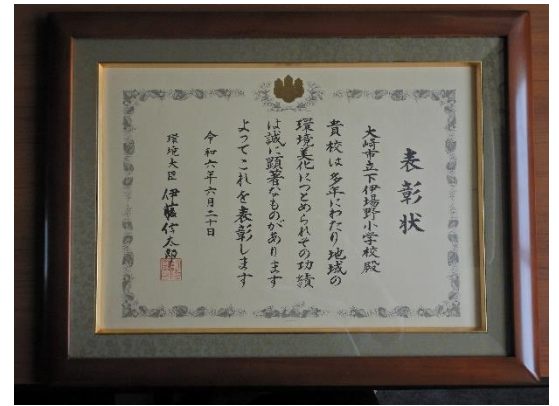 表彰状
大崎市立下伊場野小学校殿
貴校は多年にわたり地域の
環境美化につとめられその功績
は誠に顕著なものがあります
よってこれを表彰します
令和六年六月二十日
環境大臣 伊藤信太郎